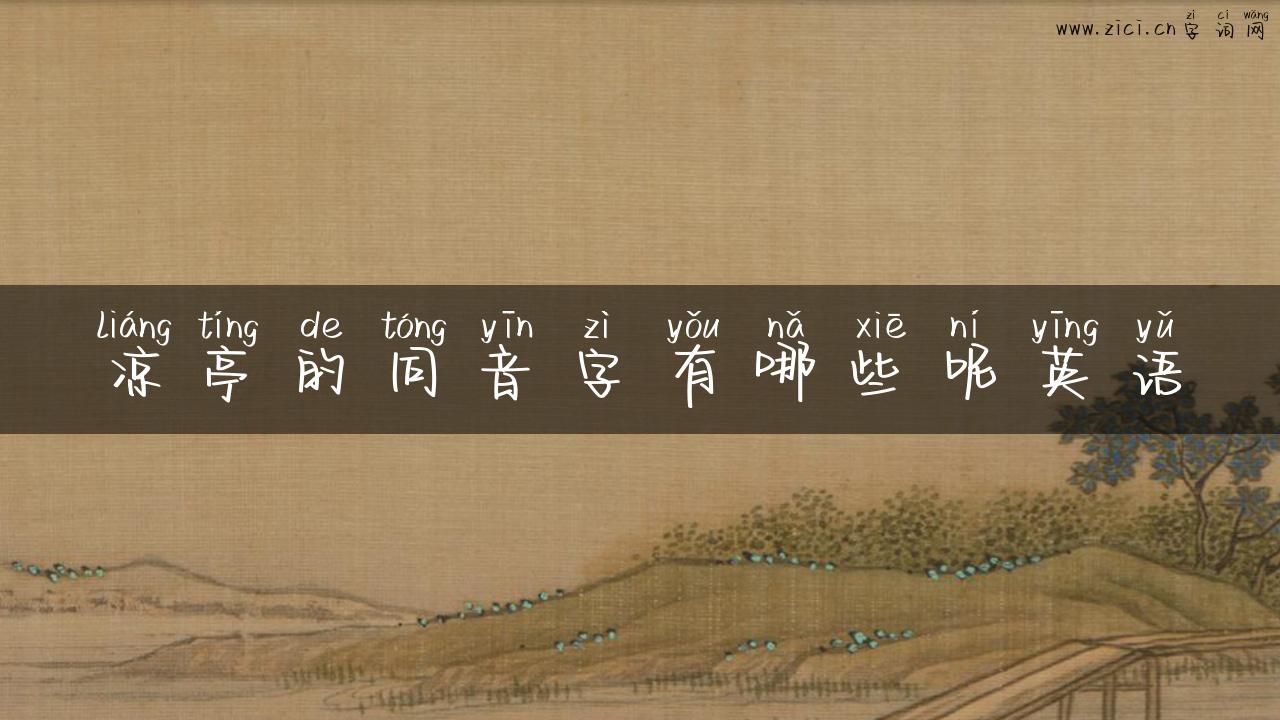 zì cí wǎng
www.zici.cn字词网
liáng tíng de tóng yīn zì yǒu nǎ xiē ní yīng yǔ
凉亭的同音字有哪些呢英语